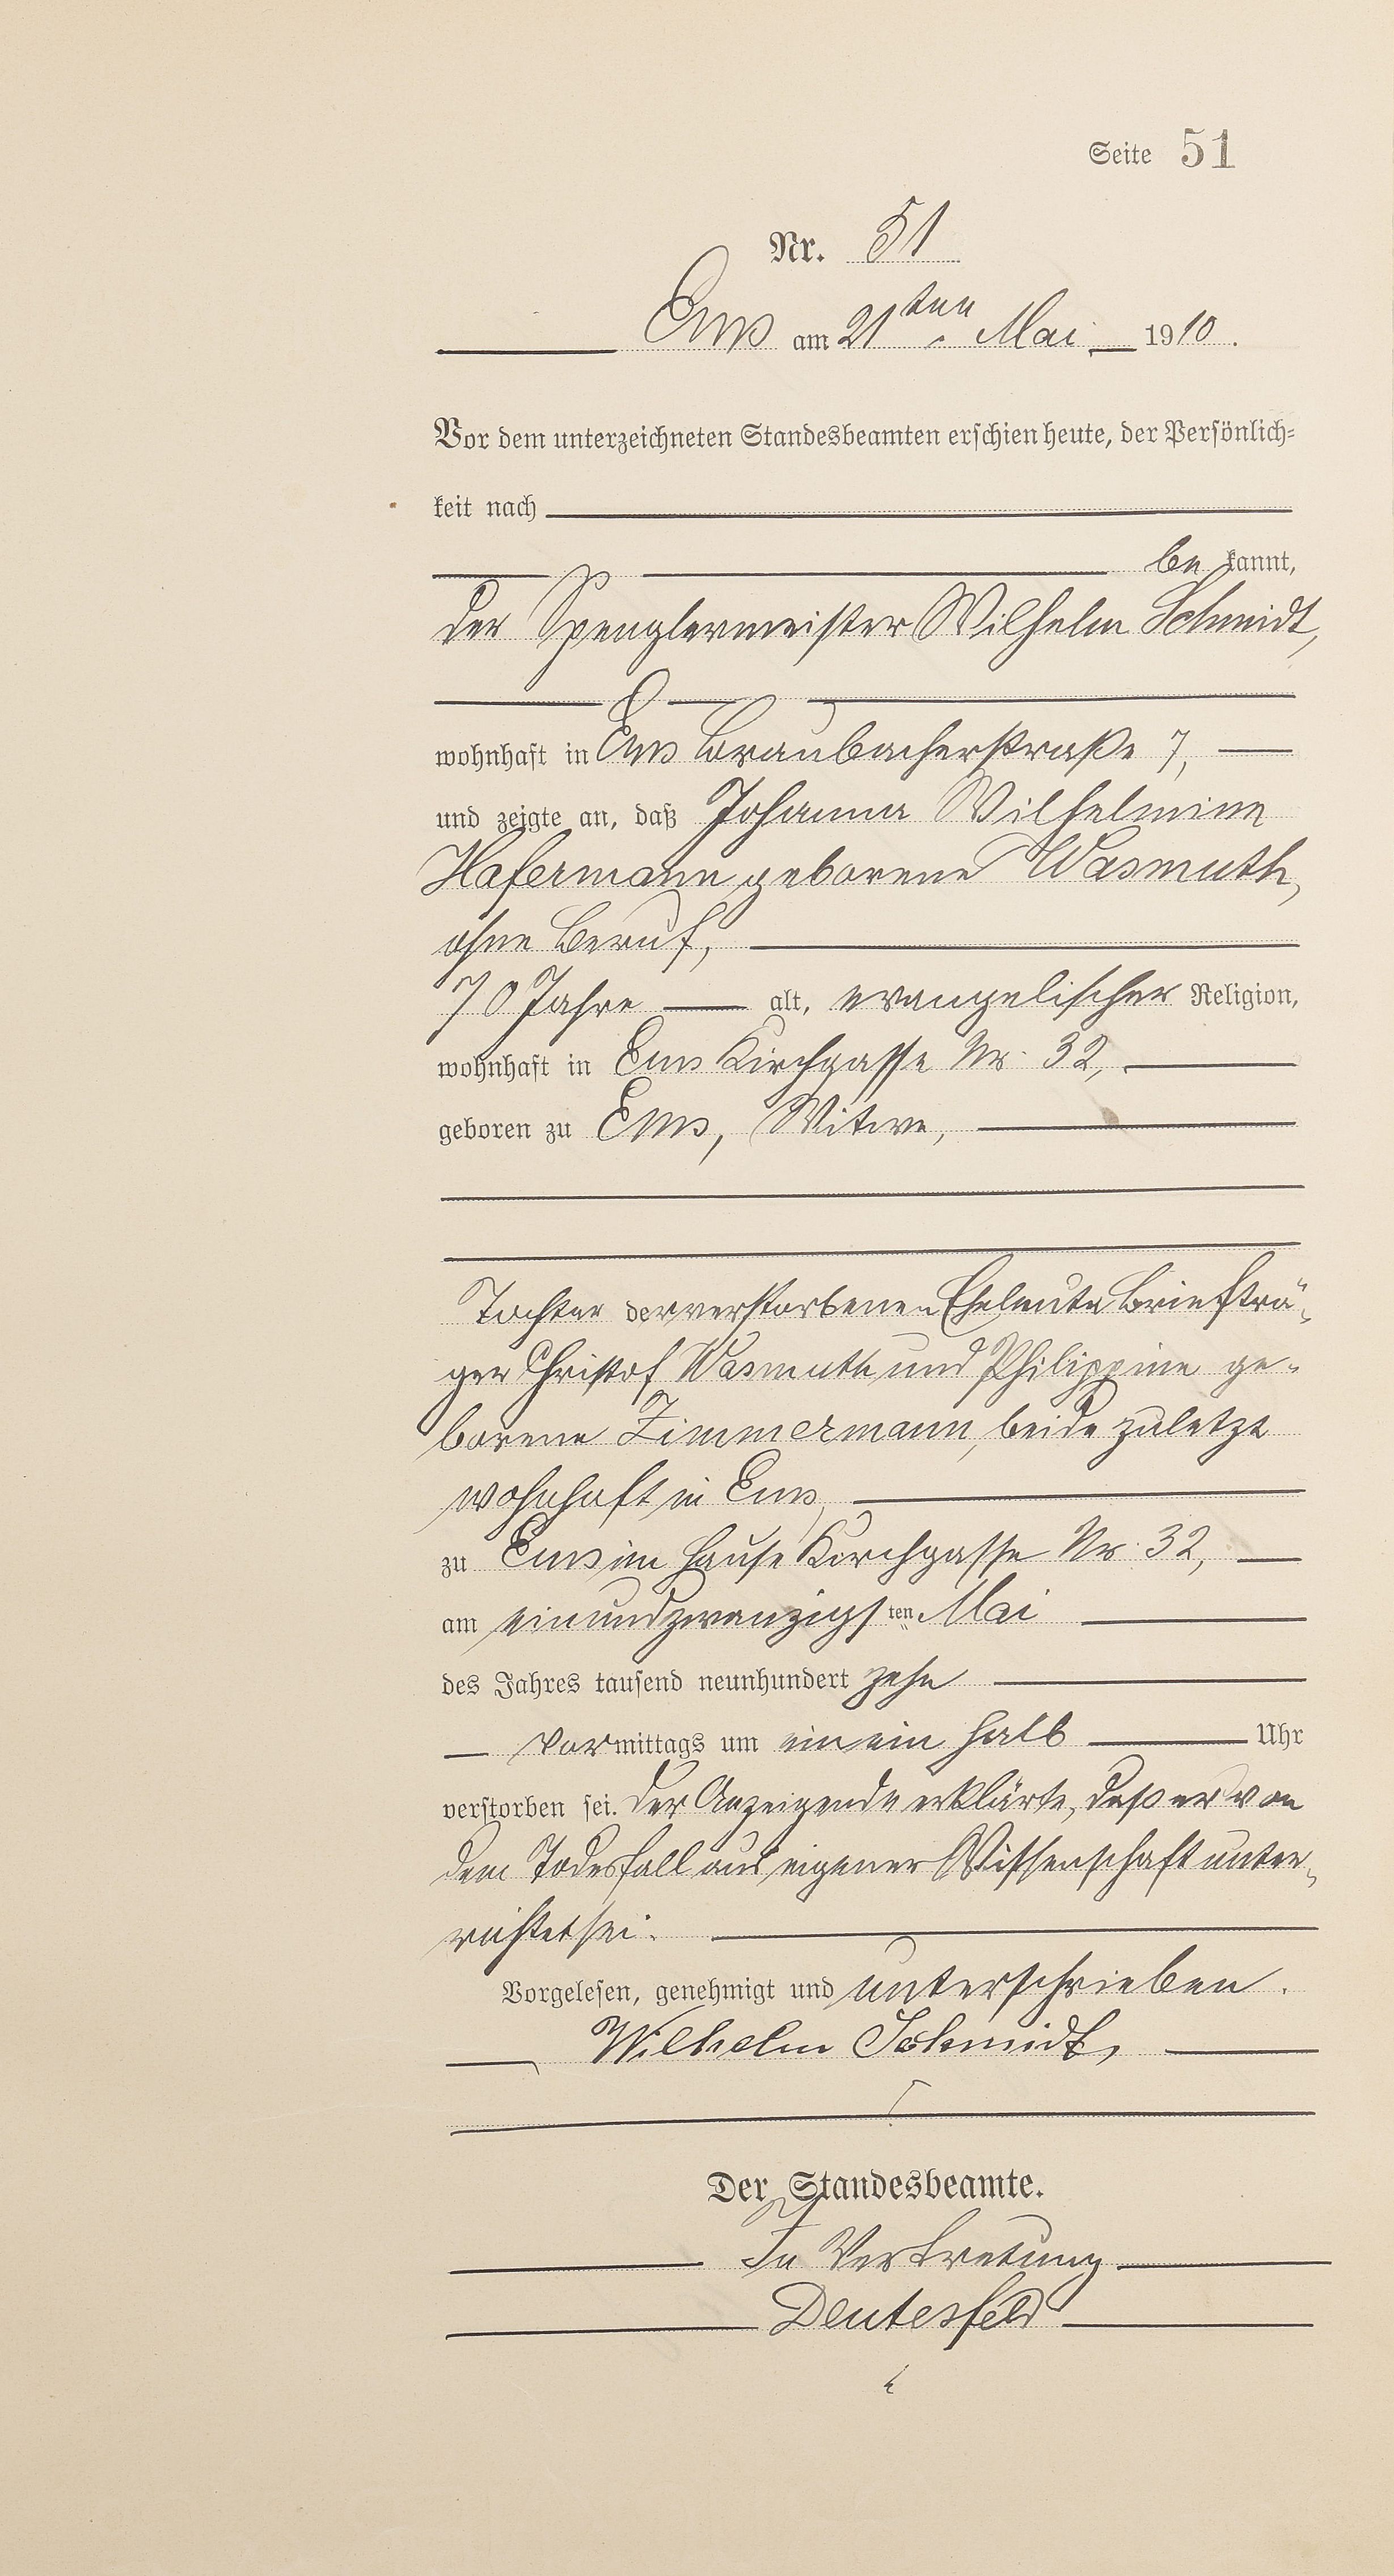 Seite 51
Nr. 51
Ems am 21ten Mai 1910.
Vor dem unterzeichneten Standesbeamten erschien heute, der Persönlich-
keit nach
be kannt,
der Spenglermeister Wilhelm Schmidt,
wohnhaft in Ems Braubacherstraße 7,
und zeigte an, daß Johanna Wilhelmine
Hafermann geborene Wasmuth,
ohne Beruf,
70 Jahre alt, evangelischer Religion,
wohnhaft in Ems Kirchgasse Nr. 32,
geboren zu Ems, Witwe,
Tochter der verstorbenen Eheleute Briefträ-
ger Christof Wasmuth und Philippine ge-
borene Zimmermann, beide zuletzt
wohnhaft in Ems,
zu Ems im Hause Kirchgasse Nr. 32,
am einundzwanzigsten Mai
des Jahres tausend neunhundert zehn
Vormittags um ein ein halb Uhr
verstorben sei. Der Anzeigende erklärte, daß er von
dem Todesfall aus eigener Wissenschaft unter-
richtet sei.
Vorgelesen, genehmigt und unterschrieben.
Wilhelm Schmidt,
Der Standesbeamte.
In Vertretung
Deutesfeld